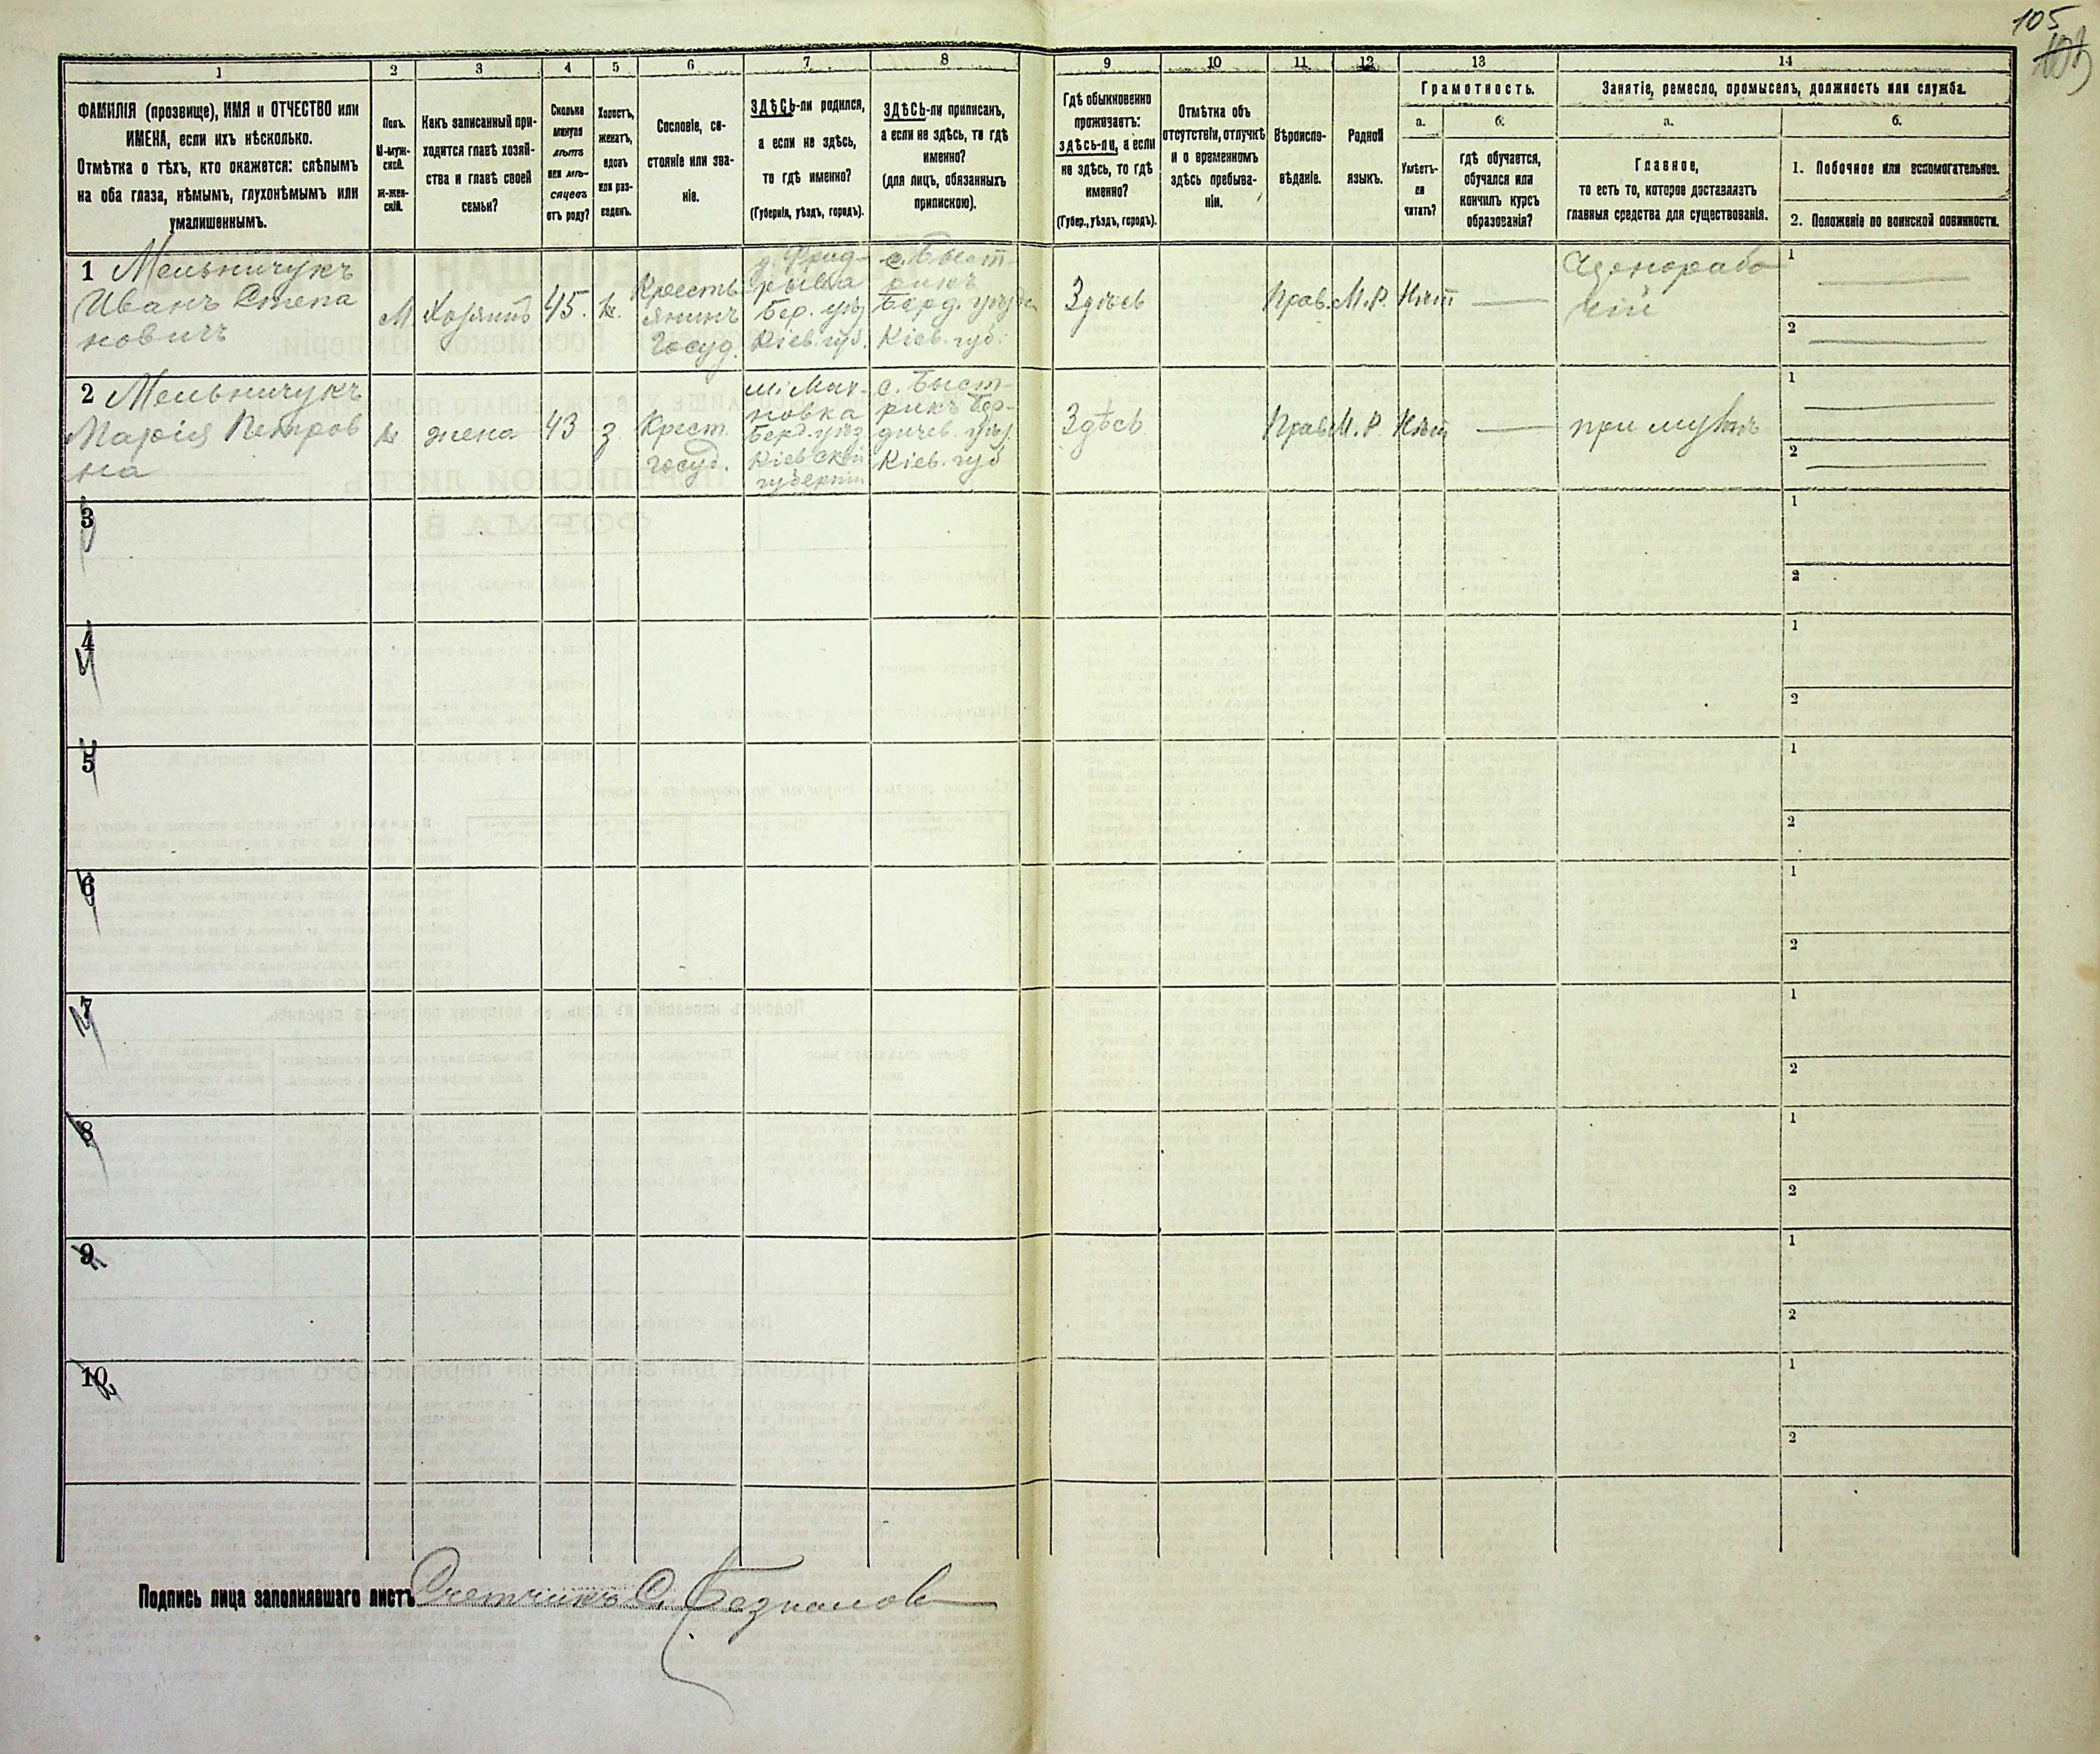 105
1
2
3
4
5
6
7
8
9
10
11
12
13
14
ФАМИЛІЯ (прозвище), ИМЯ и ОТЧЕСТВО или
ИМЕНА, если ихъ нѣсколько.
Отмѣтка о тѣхъ, кто окажется: слѣпымъ
на оба глаза, нѣмымъ, глухонѣмымъ или
умалишеннымъ.
Полъ.
М-муж-
ской.
ж-жен-
скій.
Какъ записанный при-
ходится главѣ хозяй-
ства и главѣ своей
семьи?
Сколько
минуло
лѣтъ
или мѣ-
сяцевъ
отъ роду?
Холостъ,
женатъ,
вдовъ
или раз-
веденъ.
Сословіе, со-
стояніе или зва-
ніе.
ЗДѢСЬ-ли родился,
а если не здѣсь,
то гдѣ именно?
(Губернія, уѣздъ, городъ).
ЗДѢСЬ-ли приписанъ,
а если не здѣсь, то гдѣ
именно?
(для лицъ, обязанныхъ
припискою).
Гдѣ обыкновенно
проживаетъ:
здѣсь-ли, а если
не здѣсь, то гдѣ
именно?
(Губер., уѣздъ, городъ).
Отмѣтка объ
отсутствіи, отлучкѣ
и о временномъ
здѣсь пребыва-
ніи.
Вѣроиспо-
вѣданіе.
Родной
языкъ.
Грамотность.
а.
б.
Умѣетъ-
ли
читать?
гдѣ обучается,
обучался или
кончилъ курсъ
образованія?
Занятіе, ремесло, промыселъ, должность или служба.
а.
б.
Главное,
то есть то, которое доставляетъ
главныя средства для существованія.
1. Побочное или вспомогательное.
2. Положеніе по воинской повинности.
1 Мельничукъ
Иванъ Степа
новичъ
М
Хозяинъ
45.
ж.
Кресть
янинъ
Госуд.
Бер. уѣз
Кіев. губ.
с. Быст-
рикъ
Берд. уѣзда
Кіев. губ.
Здѣсь
Прав.
М.Р.
Нѣт
чернорабо
чій
1
2
2 Мельничукъ
Марія Петров
на
ж
жена
43
з.
Крест.
госуд.
м. Мах-
новка
Берд. уѣз
Кіевской
губерніи
с. Быст-
рикъ Бер-
дичев. уѣз.
Кіев. губ
Здѣсь
Прав.
М.Р.
Нѣт
при мужѣ
1
2
3
1
2
4
1
2
5
1
2
6
1
2
7
1
2
8
1
2
9
1
2
10
1
2
Подпись лица заполнявшаго листъ Счетчикъ С.